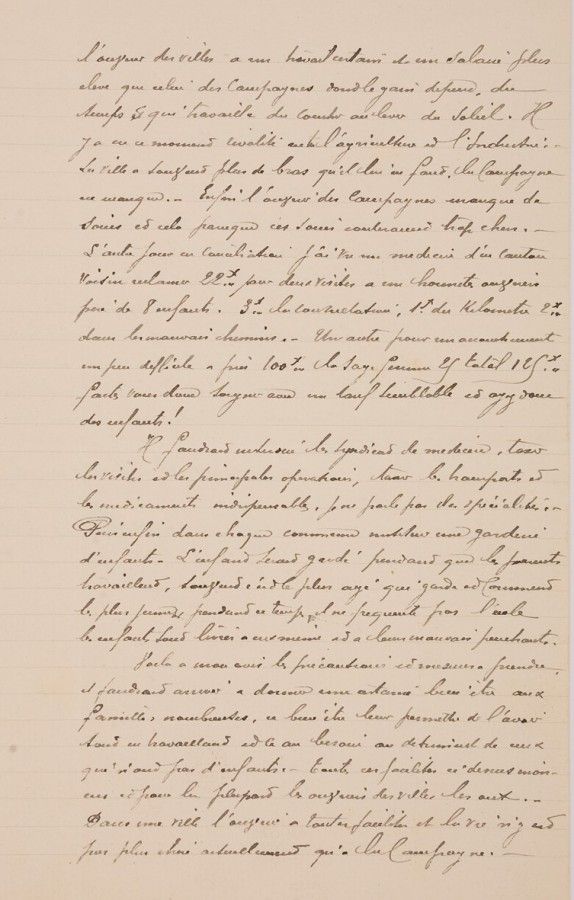 l'ouvrier des villes a un travail certain et un salaire plus
eleve que celui des Campagnes dont le gain depend, du
temps et qui travaille du coucher au lever du Soleil. Il
y a en ce moment rivalité entre l'agriculture et l'Industrie:-
La ville a toujours plus de bras qu'il lui en faud, la Campagne
en manque.- Enfin l'ouvrier des Campagnes manque de
soins et cela parceque ces soins couteraient trop chers.-
L'autre jour en Conciliation j'ai vu un medecin d'un Canton
Voisin reclamer 22 pour deux visites a un honnete ouvrier
pere de 8 enfants. 3 la consultation, 1 du Kilometre 2
dans les mauvais chemins.- Un autre pour un accouchement
un peu difficile a pris 100 la Sage femme 25 total 125
faites vous donc soigner avec un tarif semblable et ayez donc
des enfants!
Il faudrait interdire les Syndicat de medecins, taxer
les visites et les principales operations, taxer les transports et
les medicaments indispensables, je ne parle pas des spécialités.-
Puis enfin dans chaque commune instituer une garderie
d'enfants- L'enfant serait gardé pendand que les parents
travaillend, toujours c'est le plus agé qui garde et Commend
les plus jeunes, pendand ce temps, il ne frequente pas l'école
les enfants sont livrés a eux meme et a leurs mauvais penchants.
Voila a mon avis les précautions et mesures a prendre,
il faudrait arriver a donner une certaine bien être aux
familles nombreuses, ce bien être leur permettre de l'avoir
tout en travailland et le au besoin au detriment de ceux
qui n'ont pas d'enfants.- Toutes ces facilités ci dessus
et pour la plupard les ouvriers des villes les ont.-
Dans une ville l'ouvrier a toutes facilités et la vie n'y est
pas plus chere actuellement qu'a la Campagne.-